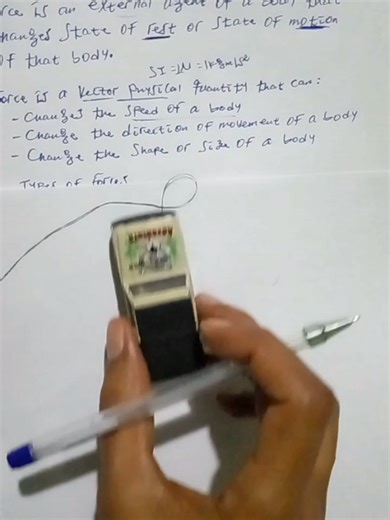 rce is an external agent of a body that
changes state of rest or state of motion
of that body.
SI = N = 1kgm/s²
force is a vector physical quantity that can:
- Changes the speed of a body
- Change the direction of movement of a body
- Change the shape or size of a body
Types of forces